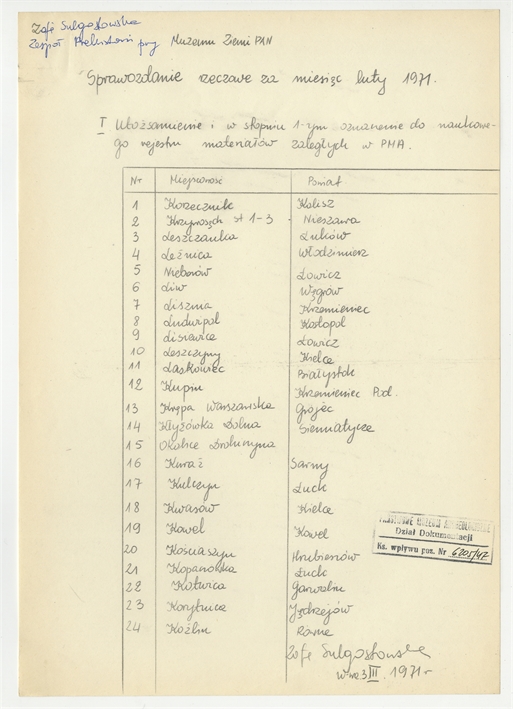 Zofia Sulgostowska
Zespół Prehistorii przy Muzeum Ziemi PAN
Sprawozdanie rzeczowe za miesiąc luty 1971.
I Utożsamienie i w stopniu 1-ym oznaczenie do naukowe-
go rejestru materiałów zaległych w PMA.
Nr Miejscowość Powiat
1 Korzecznik Kolisz
2 st 1-3 - Nieszawa
3 Leszczanka Łuków
4 Leźnica Włodzimierz
5 Nieborów Łowicz
6 Liw Węgrów
7 Liszma Krzemieniec
8 Ludwipol Kostopol
9 Lisiewice Łowicz
10 Leszczyny Kielce
11 Laskowiec Białystok
12 Kupin Krzemieniec Pod.
13 Krępa Warszawska Grójec
14 Kłyżówka Dolna Siemiatycze
15 Okolice Drohiczyna
16 Kuraż Sarny
17 Kulczyn Łuck
18 Kwasów Kielce
19 Kowel Kowel
20 Kościaszyn Hrubieszów
21 Kopanówka Łuck
22 Kotwica Garwolin
23 Korytnica Jędrzejów
24 Koźlin Równe
PAŃSTWOWE MUZEUM ARCHEOLOGICZNE
Dział Dokumentacji
Ks. wpływu poz. Nr 6205/47
Zofia Sulgostowska
W-wa 3 III. 1971 r